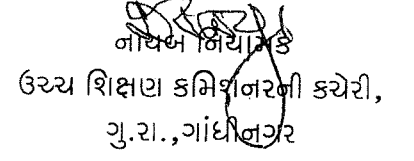 નાયબ નિયામક
ઉચ્ચ શિક્ષણ કમિશનરની કચેરી,
ગુ.રા.,ગાંધીનગર